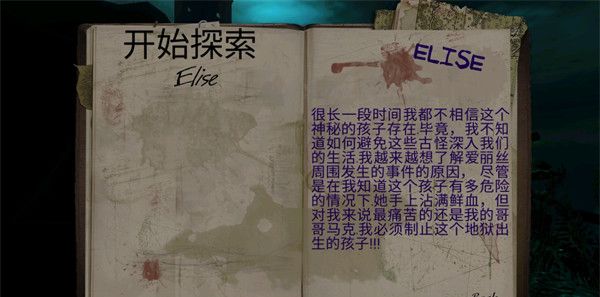 开始探索
Elise
ELISE
很长一段时间我都不相信这个
神秘的孩子存在.毕竟，我不知
道如何避免这些古怪深入我们
的生活.我越来越想了解爱丽丝
周围发生的事件的原因， 尽管
是在我知道这个孩子有多危险
的情况下.她手上沾满鲜血，但
对我来说最痛苦的还是我的哥
哥马克.我必须制止这个地狱出
生的孩子!!!
Back